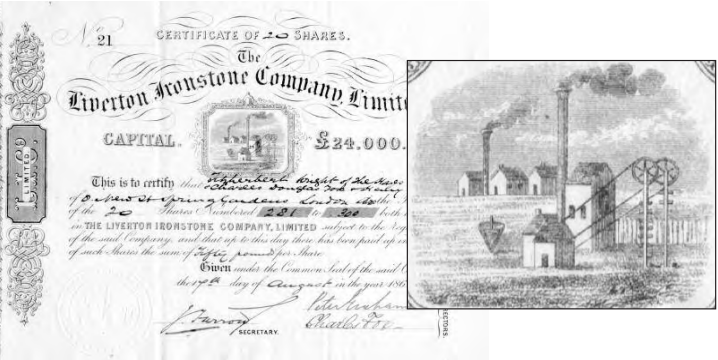 No 21 CERTIFICATE OF 20 SHARES.
The
Liverton Ironstone Company, Limite
CAPITAL. £24.000.
This is to certify that Fitzherbert Wright of The Hayes
& Charles Douglas Fox
of 8 New St Spring Gardens London
of the 20 Shares Numbered 281 to 300 both
in THE LIVERTON IRONSTONE COMPANY, LIMITED subject to the
of the said Company, and that up to this day there has been paid up
of such Shares the sum of Fifty pounds per Share
Given under the Common Seal of the said
the day of August in the year 186
J. Farrow Peter Graham
SECRETARY. Charles Fox
LIMITED